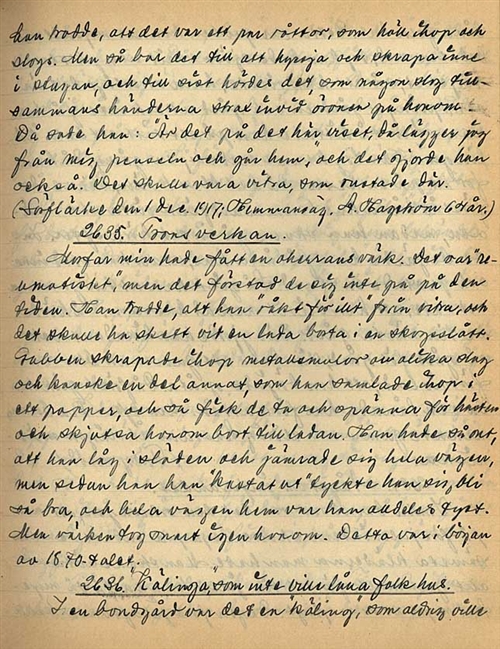 han trodde, att det var ett par råttor, som höll ihop och
slogs. Men så bar det till att hyssja och skrapa inne
i stugan, och till sist hördes det, som någon slog till-
sammans händerna strax invid öronen på honom.
Då sade han: "Är det på det här viset, då lägger jag
från mig penseln och går hem," och det gjorde han
också. Det skulle vara vitra, som rustade där.
den 1 dec. 1917; Hemmansäg. A. Hagström 62 år.)
2635. Trons verkan.
Morfar min hade fått en oherrans värk. Det var "re-
umatistet", men det förstod de sig inte på på den
tiden. Han trodde, att han "råkt för illt" från vitra, och
det skulle ha skett vit en lada borta i en skogsslått.
Gubben skrapade ihop metallsmolor av olika slag
och kanske en del annat, som han samlade ihop i
ett papper, och så fick de ta och spänna för hästen
och skjutsa honom bort till ladan. Han hade så ont,
att han låg i släden och jämrade sig hela vägen,
men sedan han han "kastat ut" tyckte han sig bli
så bra, och hela vägen hem var han alldeles tyst.
Men värken tog snart igen honom. Detta var i början
av 1870-talet.
2636. "Källinga", som inte ville låna folk hus.
I en bondgård var det en "käling", som aldrig ville